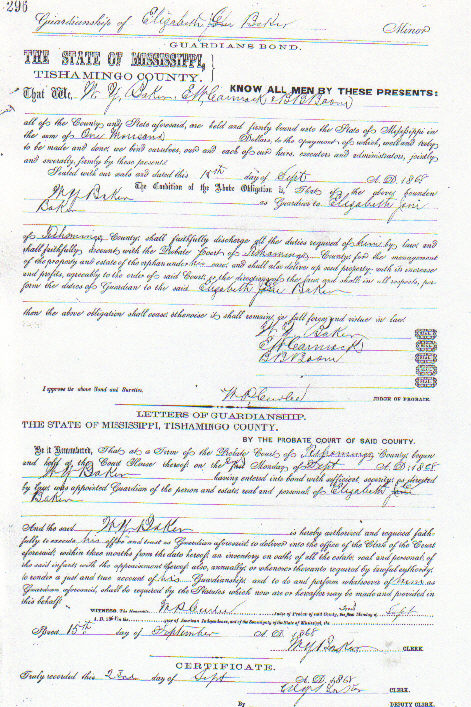 296
Guardianship of Elizabeth Jane Baker Minor
GUARDIANS BOND.
THE STATE OF MISSISSIPPI,
TISHAMINGO COUNTY.
KNOW ALL MEN BY THESE PRESENTS:
That We, W. Y. Baker, E W Carmack & B B Boone
all of the County and State aforesaid, are held and firmly bound unto the State of Mississippi in
the sum of One Thousand Dollars, to the payment of which, well and truly
to be made and done, we bind ourselves, and each of our heirs, executors and administrators, jointly
and severally, firmly by these presents.
Sealed with our seals and dated this day of Sept A. D. 1868
The Condition of the Above Obligation is, That if the above bounden
W Y Baker as Guardian to Elizabeth Jane
Baker
of Tishomingo County, shall faithfully discharge all the duties required of him by law, and
shall faithfully account with the Probate Court of Tishomingo County for the management
of the property and estate of the orphan under his care, and shall also deliver up said property with its increase
and profits, agreeably to the order of said Court, or the directions of the law, and shall in all respects, per-
form the duties of Guardian to the said Elizabeth Jane Baker
then the above obligation shall cease, otherwise it shall remain in full force and virtue in law.
W Y Baker
E W Carmack
B B Boone
I approve the above Bond and Sureties.
JUDGE OF PROBATE.
LETTERS OF GUARDIANSHIP.
THE STATE OF MISSISSIPPI, TISHAMINGO COUNTY.
BY THE PROBATE COURT OF SAID COUNTY.
Be it Remembered, That at a Term of the Probate Court of Tishomingo County, begun
and held at the Court House thereof, on the Monday of Sept A. D. 1868
W Y Baker having entered into bond with sufficient security as directed
by law, was appointed Guardian of the person and estate, real and personal of Elizabeth Jane
Baker
And the said W Y Baker is hereby authorized and required faith-
fully to execute his office and trust as Guardian aforesaid, to deliver into the office of the Clerk of the Court
aforesaid, within three months from the date hereof, an inventory on oath of all the estate, real and personal, of
the said infants with the appointment hereof; also, annually, or whenever thereunto required by lawful authority,
to render a just and true account of his Guardianship, and to do and perform whatsoever of him as
Guardian aforesaid, shall be required by the Statutes which now are or hereafter may be made and provided in
this behalf.
WITNESS, The Honorable Judge of Probate of said County, the Monday of Sept
A. D. 186 year of American Independence, and of the Sovereignty of the State of Mississippi, the
Issued 15th day of September A. D. 1868
CLERK
CERTIFICATE.
Truly recorded this 22nd day of Sept A. D. 1868
CLERK.
By DEPUTY CLERK.